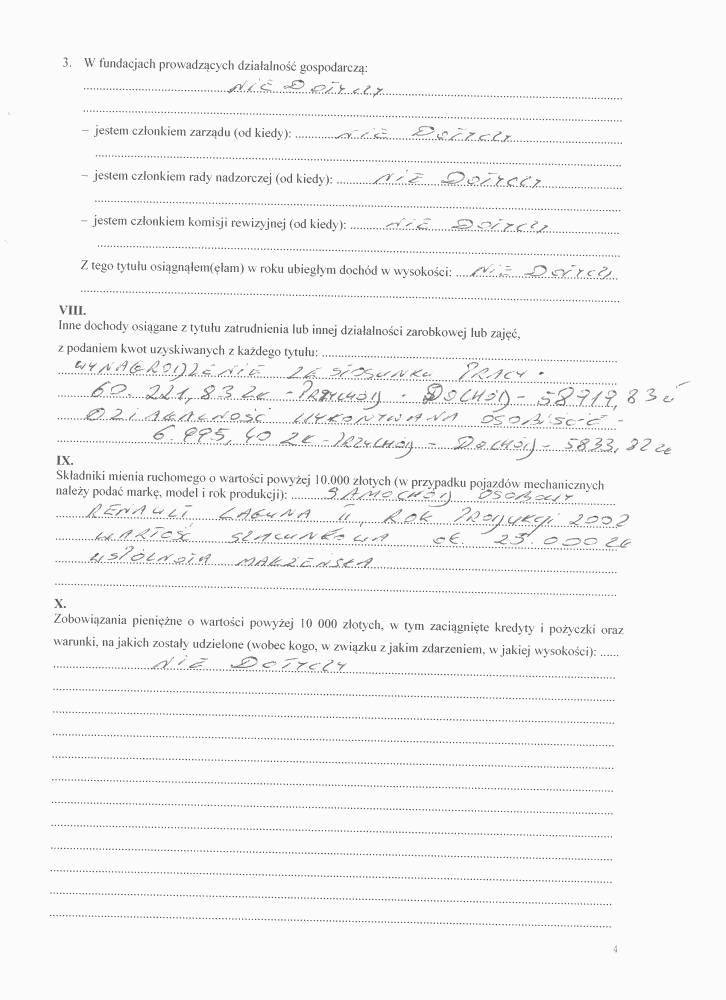 3. W fundacjach prowadzących działalność gospodarczą:
NIE DOTYCZY
– jestem członkiem zarządu (od kiedy): NIE DOTYCZY
– jestem członkiem rady nadzorczej (od kiedy): NIE DOTYCZY
– jestem członkiem komisji rewizyjnej (od kiedy): NIE DOTYCZY
Z tego tytułu osiągnąłem(ęłam) w roku ubiegłym dochód w wysokości: NIE DOTYCZY
VIII.
Inne dochody osiągane z tytułu zatrudnienia lub innej działalności zarobkowej lub zajęć,
z podaniem kwot uzyskiwanych z każdego tytułu:
WYNAGRODZENIE ZE STOSUNKU PRACY -
60.221,83 ZŁ - PRZYCHÓD - DOCHÓD - 58919,83 zł
DZIAŁALNOŚĆ WYKONYWANA OSOBIŚCIE -
6.995,40 ZŁ - PRZYCHÓD - DOCHÓD - 5833,82 zł
IX.
Składniki mienia ruchomego o wartości powyżej 10.000 złotych (w przypadku pojazdów mechanicznych
należy podać markę, model i rok produkcji): SAMOCHÓD OSOBOWY
RENAULT LAGUNA II, ROK PRODUKCJI 2002
WARTOŚĆ SZACUNKOWA OK. 25.000 ZŁ
WSPÓLNOTA MAŁŻEŃSKA
X.
Zobowiązania pieniężne o wartości powyżej 10 000 złotych, w tym zaciągnięte kredyty i pożyczki oraz
warunki, na jakich zostały udzielone (wobec kogo, w związku z jakim zdarzeniem, w jakiej wysokości): ......
NIE DOTYCZY
4